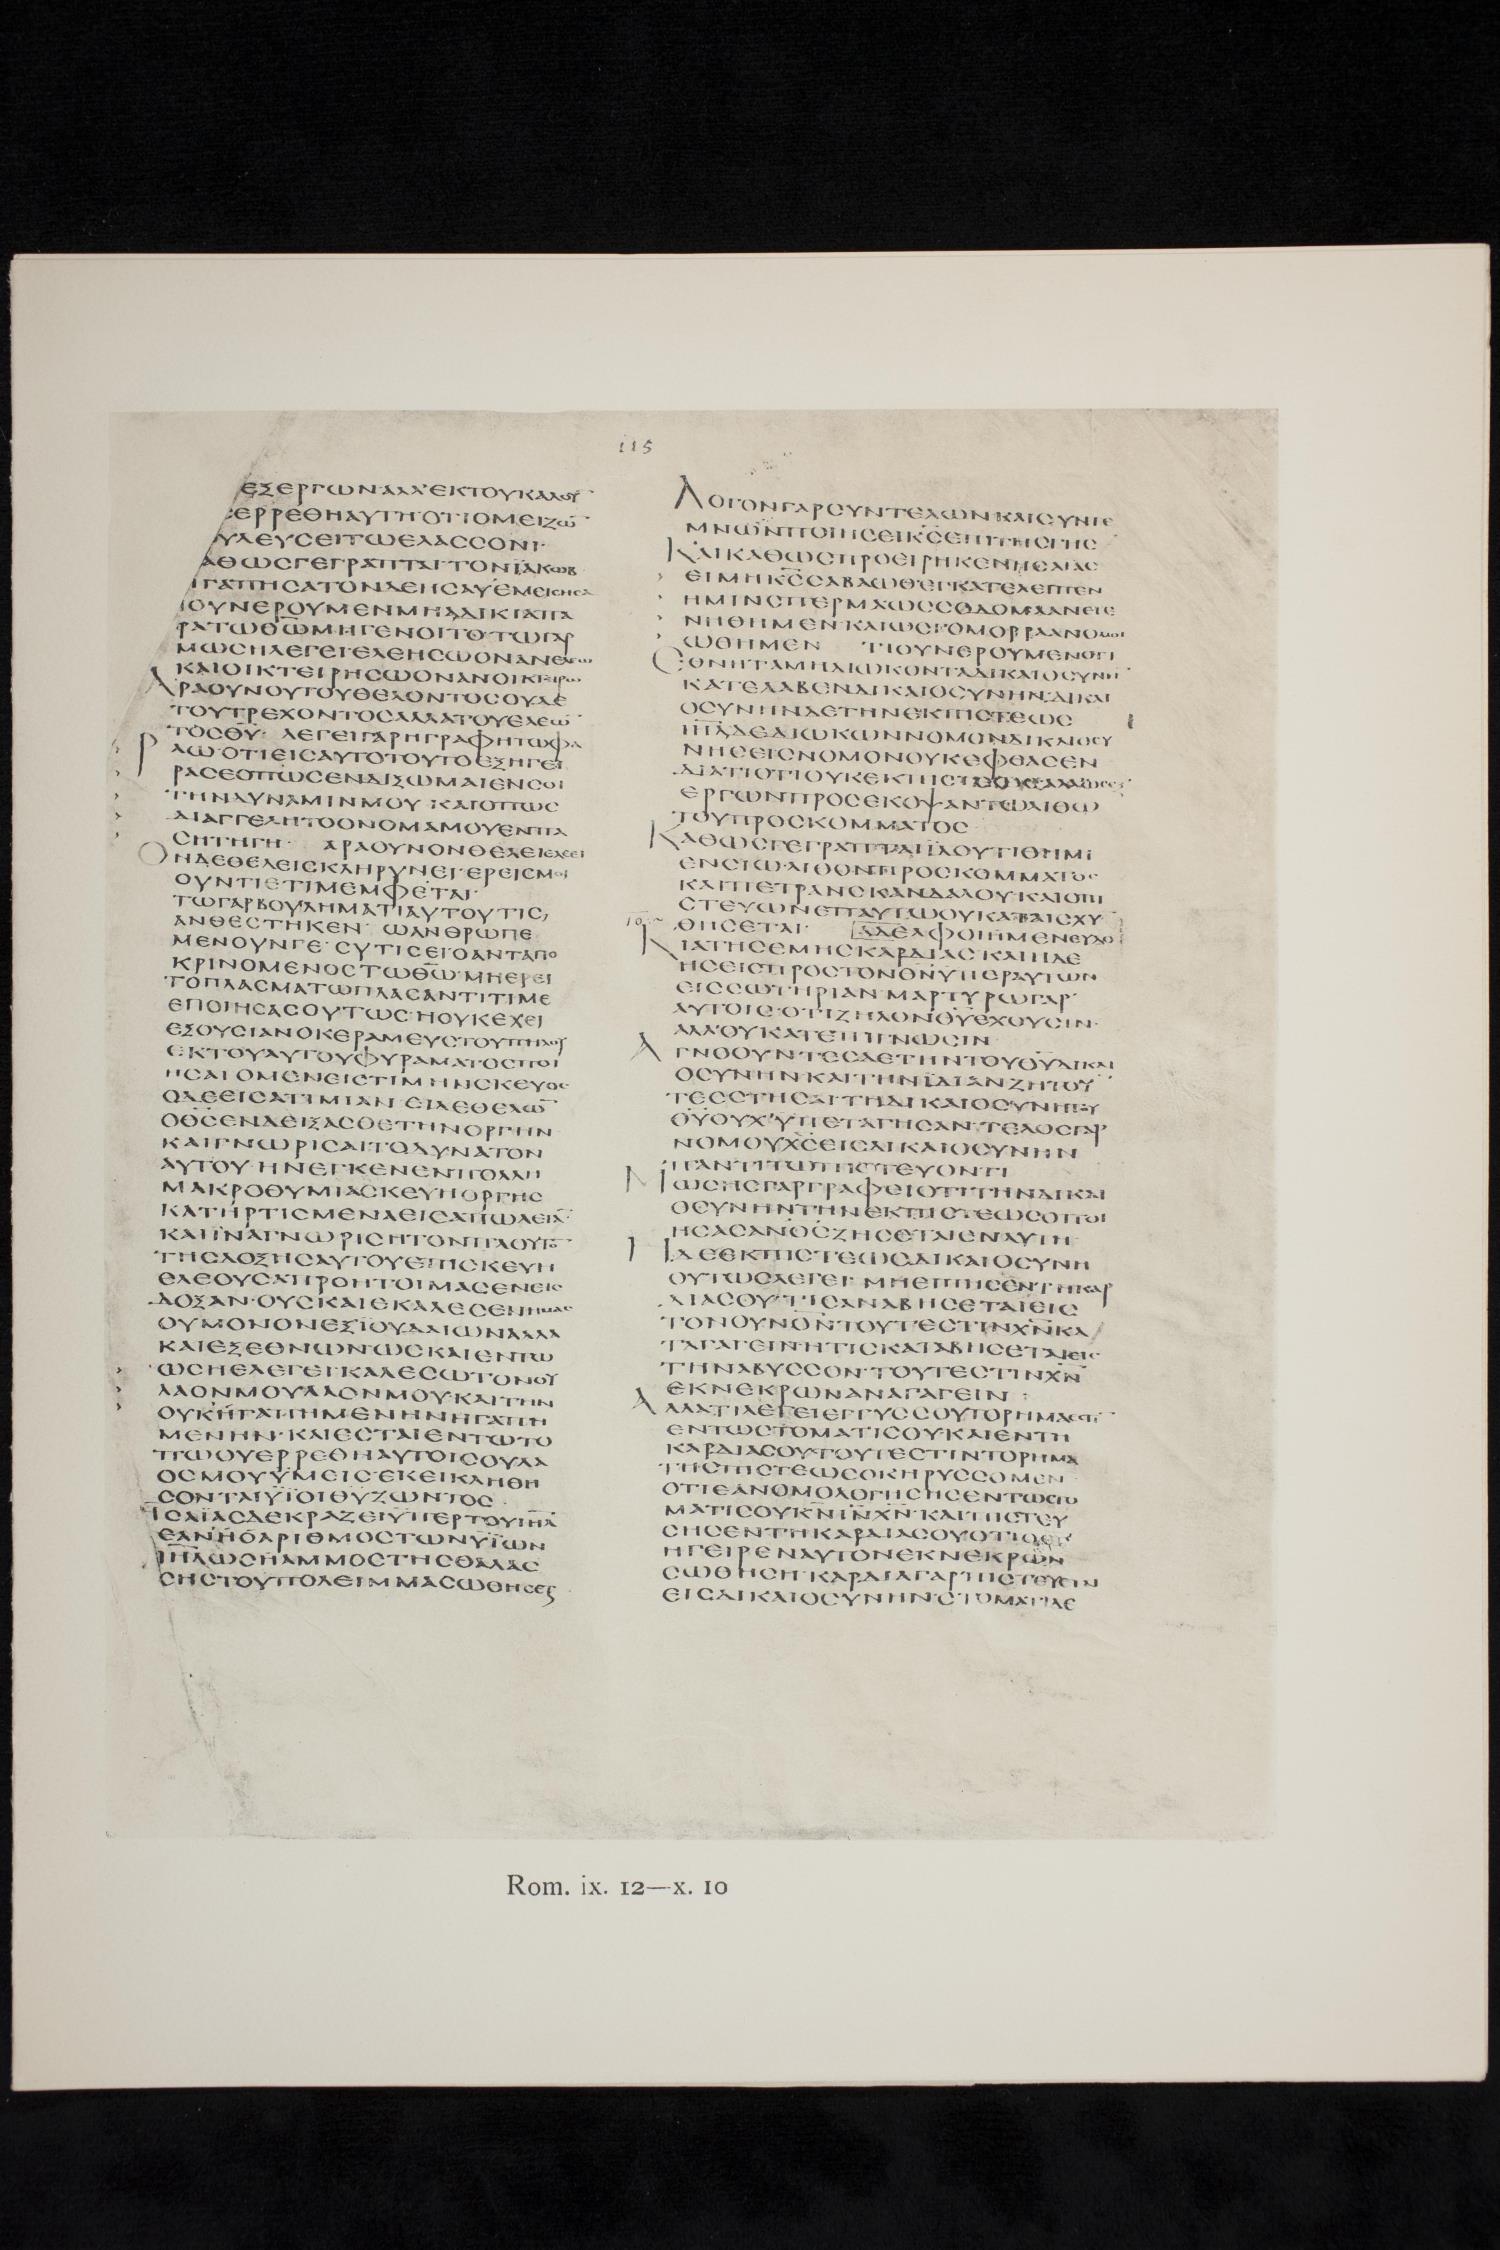 115
ΕΞΕΡΓΩΝΑΛΛΕΚΤΟΥΚΑΛΟΥ
ΕΡΡΕΘΗΑΥΤΗ·ΟΤΙΟΜΕΙΖΩ̅
ΥΛΕΥΣΕΙΤΩΕΛΑΣΣΟΝΙ·
ΑΘΩΣΓΕΓΡΑΠΤΑΙ·ΤΟΝΪΑΚΩΒ
ΓΑΠΗΣΑΤΟΝΔΕΗΣΑΥΕΜΕΙΣΗΣΑ
ΟΥΝΕΡΟΥΜΕΝΜΗΑΔΙΚΙΑΠΑ
ΡΑΤΩΘ̅Ω̅ΜΗΓΕΝΟΙΤΟ·ΤΩΓΑΡ
ΜΩΣΗΛΕΓΕΙ·ΕΛΕΗΣΩΟΝΑΝΕΛΕΩ
ΚΑΙΟΙΚΤΕΙΡΗΣΩΟΝΑΝΟΙΚΤΕΙΡΩ
ΑΡΑΟΥΝΟΥΤΟΥΘΕΛΟΝΤΟΣΟΥΔΕ
ΤΟΥΤΡΕΧΟΝΤΟΣΑΛΛΑΤΟΥΕΛΕΩ̅
ΤΟΣΘ̅Υ̅· ΛΕΓΕΙΓΑΡΗΓΡΑΦΗΤΩΦΑ
ΡΑΩ·ΟΤΙΕΙΣΑΥΤΟΤΟΥΤΟΕΞΗΓΕΙ
ΡΑΣΕΟΠΩΣΕΝΔΙΞΩΜΑΙΕΝΣΟΙ
ΤΗΝΔΥΝΑΜΙΝΜΟΥ·ΚΑΙΟΠΩΣ
ΔΙΑΓΓΕΛΗΤΟΟΝΟΜΑΜΟΥΕΝΠΑ
ΣΗΤΗΓΗ· ΑΡΑΟΥΝΟΝΘΕΛΕΙΕΛΕΕΙ
ΟΝΔΕΘΕΛΕΙΣΚΛΗΡΥΝΕΙ·ΕΡΕΙΣΜΟΙ
ΟΥΝΤΙΕΤΙΜΕΜΦΕΤΑΙ·
ΤΩΓΑΡΒΟΥΛΗΜΑΤΙΑΥΤΟΥΤΙΣ,
ΑΝΘΕΣΤΗΚΕΝ· ΩΑΝΘΡΩΠΕ
ΜΕΝΟΥΝΓΕ·ΣΥΤΙΣΕΙΟΑΝΤΑΠΟ
ΚΡΙΝΟΜΕΝΟΣΤΩΘ̅Ω̅·ΜΗΕΡΕΙ
ΤΟΠΛΑΣΜΑΤΩΠΛΑΣΑΝΤΙΤΙΜΕ
ΕΠΟΙΗΣΑΣΟΥΤΩΣ·ΗΟΥΚΕΧΕΙ
ΕΞΟΥΣΙΑΝΟΚΕΡΑΜΕΥΣΤΟΥΠΗΛΟΥ
ΕΚΤΟΥΑΥΤΟΥΦΥΡΑΜΑΤΟΣΠΟΙ
ΗΣΑΙΟΜΕΝΕΙΣΤΙΜΗΝΣΚΕΥΟΣ
ΟΔΕΕΙΣΑΤΙΜΙΑΝ·ΕΙΔΕΘΕΛΩ̅
ΟΘ̅Σ̅ΕΝΔΕΙΞΑΣΘΕΤΗΝΟΡΓΗΝ
ΚΑΙΓΝΩΡΙΣΑΙΤΟΔΥΝΑΤΟΝ
ΑΥΤΟΥ·ΗΝΕΓΚΕΝΕΝΠΟΛΛΗ
ΜΑΚΡΟΘΥΜΙΑΣΚΕΥΗΟΡΓΗΣ
ΚΑΤΗΡΤΙΣΜΕΝΑΕΙΣΑΠΩΛΕΙΑ̅
ΚΑΙΪΝΑΓΝΩΡΙΣΗΤΟΝΠΛΟΥΤΟ̅
ΤΗΣΔΟΞΗΣΑΥΤΟΥΕΠΙΣΚΕΥΗ
ΕΛΕΟΥΣΑΠΡΟΗΤΟΙΜΑΣΕΝΕΙΣ
ΔΟΞΑΝ·ΟΥΣΚΑΙΕΚΑΛΕΣΕΝΗΜΑΣ
ΟΥΜΟΝΟΝΕΞΪΟΥΔΑΙΩΝΑΛΛΑ
ΚΑΙΕΞΕΘΝΩΝΩΣΚΑΙΕΝΤΩ
ΩΣΗΕΛΕΓΕΙ·ΚΑΛΕΣΩΤΟΝΟΥ
ΛΑΟΝΜΟΥΛΑΟΝΜΟΥ·ΚΑΙΤΗΝ
ΟΥΚΗΓΑΠΗΜΕΝΗΝΗΓΑΠΗ
ΜΕΝΗΝ·ΚΑΙΕΣΤΑΙΕΝΤΩΤΟ
ΠΩΟΥΕΡΡΕΘΗΑΥΤΟΙΣΟΥΛΑ
ΟΣΜΟΥΫΜΕΙΣ·ΕΚΕΙΚΛΗΘΗ
ΣΟΝΤΑΙΫΪΟΙΘ̅Υ̅ΖΩΝΤΟΣ·
ΗΣΑΪΑΣΔΕΚΡΑΖΕΙΫΠΕΡΤΟΥΙ̅Η̅Λ̅
ΕΑΝΗΟΑΡΙΘΜΟΣΤΩΝΫΪΩΝ
Ι̅Η̅Λ̅ΩΣΗΑΜΜΟΣΤΗΣΘΑΛΑΣ
ΣΗΣΤΟΥΠΟΛΕΙΜΜΑΣΩΘΗΣΕΤ
ΛΟΓΟΝΓΑΡΣΥΝΤΕΛΩΝΚΑΙΣΥΝΤΕ
ΜΝΩΝΠΟΙΗΣΕΙΚ̅Σ̅ΕΠΙΤΗΣΓΗΣ
ΚΑΙΚΑΘΩΣΠΡΟΕΙΡΗΚΕΝΗΣΑΙΑΣ
ΕΙΜΗΚ̅Σ̅ΣΑΒΑΩΘΕΓΚΑΤΕΛΕΠΕΝ
ΗΜΙΝΣΠΕΡΜΑΩΣΣΟΔΟΜΑΑΝΕΓΕ
ΝΗΘΗΜΕΝΚΑΙΩΣΓΟΜΟΡΡΑΑΝΟΜΟΙ
ΩΘΗΜΕΝ ΤΙΟΥΝΕΡΟΥΜΕΝΟΤΙ
ΕΘΝΗΤΑΜΗΔΙΩΚΟΝΤΑΔΙΚΑΙΟΣΥΝΗ̅
ΚΑΤΕΛΑΒΕΝΔΙΚΑΙΟΣΥΝΗΝ·ΔΙΚΑΙ
ΟΣΥΝΗΝΔΕΤΗΝΕΚΠΙΣΤΕΩΣ
Ι̅Η̅Λ̅ΔΕΔΙΩΚΩΝΝΟΜΟΝΔΙΚΑΙΟΣΥ
ΝΗΣΕΙΣΝΟΜΟΝΟΥΚΕΦΘΑΣΕΝ
ΔΙΑΤΙΟΤΙΟΥΚΕΚΠΙΣΤΕΩΣΑΛΛΩΣΕΞ
ΕΡΓΩΝΠΡΟΣΕΚΟΨΑΝΤΩΛΙΘΩ
ΤΟΥΠΡΟΣΚΟΜΜΑΤΟΣ
ΚΑΘΩΣΓΕΓΡΑΠΤΑΙΪΔΟΥΤΙΘΗΜΙ
ΕΝΣΙΩΛΙΘΟΝΠΡΟΣΚΟΜΜΑΤΟΣ
ΚΑΙΠΕΤΡΑΝΣΚΑΝΔΑΛΟΥ·ΚΑΙΟΠΙ
ΣΤΕΥΩΝΕΠΑΥΤΩΟΥΚΑΤΑΙΣΧΥ
ΘΗΣΕΤΑΙ· ΑΔΕΛΦΟΙΗΜΕΝΕΥΔΟ
ΚΙΑΤΗΣΕΜΗΣΚΑΡΔΙΑΣΚΑΙΗΔΕ
ΗΣΕΙΣΠΡΟΣΤΟΝΘ̅Ν̅ΫΠΕΡΑΥΤΩΝ
ΕΙΣΣΩΤΗΡΙΑΝ·ΜΑΡΤΥΡΩΓΑΡ
ΑΥΤΟΙΣ·ΟΤΙΖΗΛΟΝΘ̅Υ̅ΕΧΟΥΣΙΝ·
ΑΛΛΟΥΚΑΤΕΠΙΓΝΩΣΙΝ
ΑΓΝΟΟΥΝΤΕΣΔΕΤΗΝΤΟΥΘ̅Υ̅ΔΙΚΑΙ
ΟΣΥΝΗΝΚΑΙΤΗΝΪΔΙΑΝΖΗΤΟΥ̅
ΤΕΣΣΤΗΣΑΙΤΗΔΙΚΑΙΟΣΥΝΗΤΟΥ
Θ̅Υ̅ΟΥΧΫΠΕΤΑΓΗΣΑΝ·ΤΕΛΟΣΓΑΡ
ΝΟΜΟΥΧ̅Σ̅ΕΙΣΔΙΚΑΙΟΣΥΝΗΝ
ΠΑΝΤΙΤΩΠΙΣΤΕΥΟΝΤΙ
ΜΩΣΗΣΓΑΡΓΡΑΦΕΙΟΤΙΤΗΝΔΙΚΑΙ
ΟΣΥΝΗΝΤΗΝΕΚΠΙΣΤΕΩΣΟΠΟΙ
ΗΣΑΣΑΝΟ̅Σ̅ΖΗΣΕΤΑΙΕΝΑΥΤΗ
ΗΔΕΕΚΠΙΣΤΕΩΣΔΙΚΑΙΟΣΥΝΗ
ΟΥΤΩΣΛΕΓΕΙ·ΜΗΕΙΠΗΣΕΝΤΗΚΑΡ
ΔΙΑΣΟΥ·ΤΙΣΑΝΑΒΗΣΕΤΑΙΕΙΣ
ΤΟΝΟΥΝΟ̅Ν̅ΤΟΥΤΕΣΤΙΝΧ̅Ν̅ΚΑ
ΤΑΓΑΓΕΙΝ·ΗΤΙΣΚΑΤΑΒΗΣΕΤΑΙΕΙΣ
ΤΗΝΑΒΥΣΣΟΝ·ΤΟΥΤΕΣΤΙΝΧ̅Ν̅
ΕΚΝΕΚΡΩΝΑΝΑΓΑΓΕΙΝ :
ΑΛΛΑΤΙΛΕΓΕΙΕΓΓΥΣΣΟΥΤΟΡΗΜΑΕΣΤΙ̅
ΕΝΤΩΣΤΟΜΑΤΙΣΟΥΚΑΙΕΝΤΗ
ΚΑΡΔΙΑΣΟΥ·ΤΟΥΤΕΣΤΙΝΤΟΡΗΜΑ
ΤΗΣΠΙΣΤΕΩΣΟΚΗΡΥΣΣΟΜΕΝ
ΟΤΙΕΑΝΟΜΟΛΟΓΗΣΗΣΕΝΤΩΣΤΟ
ΜΑΤΙΣΟΥΚ̅Ν̅Ι̅Ν̅Χ̅Ν̅·ΚΑΙΠΙΣΤΕΥ
ΣΗΣΕΝΤΗΚΑΡΔΙΑΣΟΥΟΤΙΟΘ̅Σ̅
ΗΓΕΙΡΕΝΑΥΤΟΝΕΚΝΕΚΡΩΝ
ΣΩΘΗΣΗ·ΚΑΡΔΙΑΓΑΡΠΙΣΤΕΥΕΤΑΙ
ΕΙΣΔΙΚΑΙΟΣΥΝΗΝ·ΣΤΟΜΑΤΙΔΕ
Rom. ix. 12—x. 10